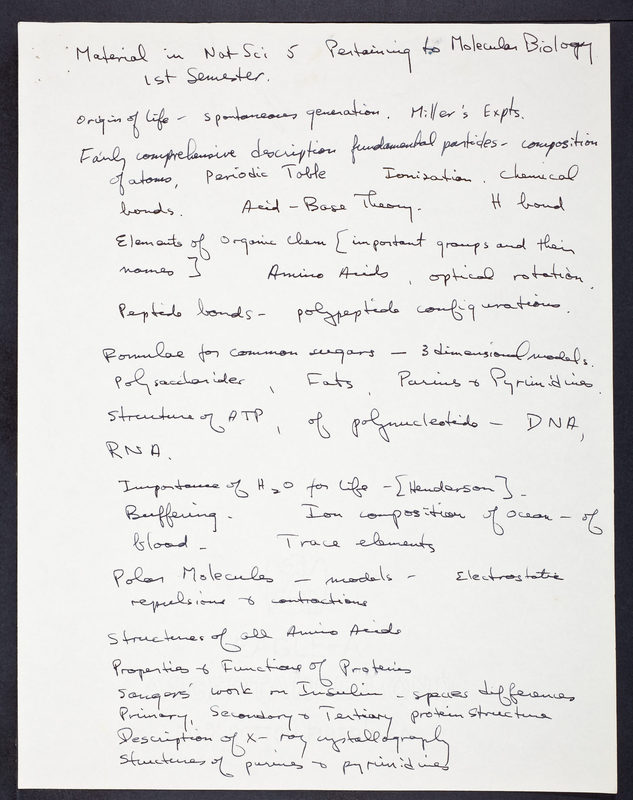 Material in Nat Sci 5 Pertaining to Molecular Biology
1st Semester.
Origin of life - spontaneous generation. Miller's Expts.
Fairly comprehensive description fundamental particles - composition
of atoms, Periodic Table Ionization. Chemical
bonds. Acid-Base Theory. H bond
Elements of Organic Chem [important groups and their
names] Amino Acids, optical rotation.
Peptide bonds - polypeptide configurations.
Formulae for common sugars - 3 dimensional models.
Polysaccharides, Fats, Purins & Pyrimidines.
Structure of ATP, of polynucleotids - DNA,
RNA.
Importance of H2O for life - [Henderson] -
Buffering. Ion composition of ocean - of
blood - Trace elements
Polar Molecules - models - Electrostatic
repulsions & contractions
Structures of all Amino Acids
Properties & Functions of Proteins
Sangers' work on Insulin - species differences
Primary, Secondary & Tertiary protein structure
Description of X-ray crystallography
Structures of purines & pyrimidines